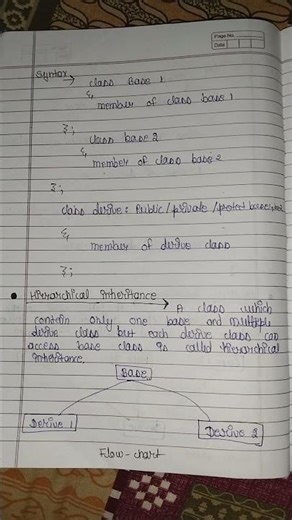 Page No.
Date
Syntax → class Base 1
{
member of class base 1
};
class base 2
{
member of class base 2
};
class derive : Public / private / protect base1,
{
member of derive class
};
• Hierarchical inheritance → A class which
contain only one base and multiple
derive class but each derive class can
access base class is called hierarchical
inheritance.
Base
Derive 1
Derive 2
Flow-chart